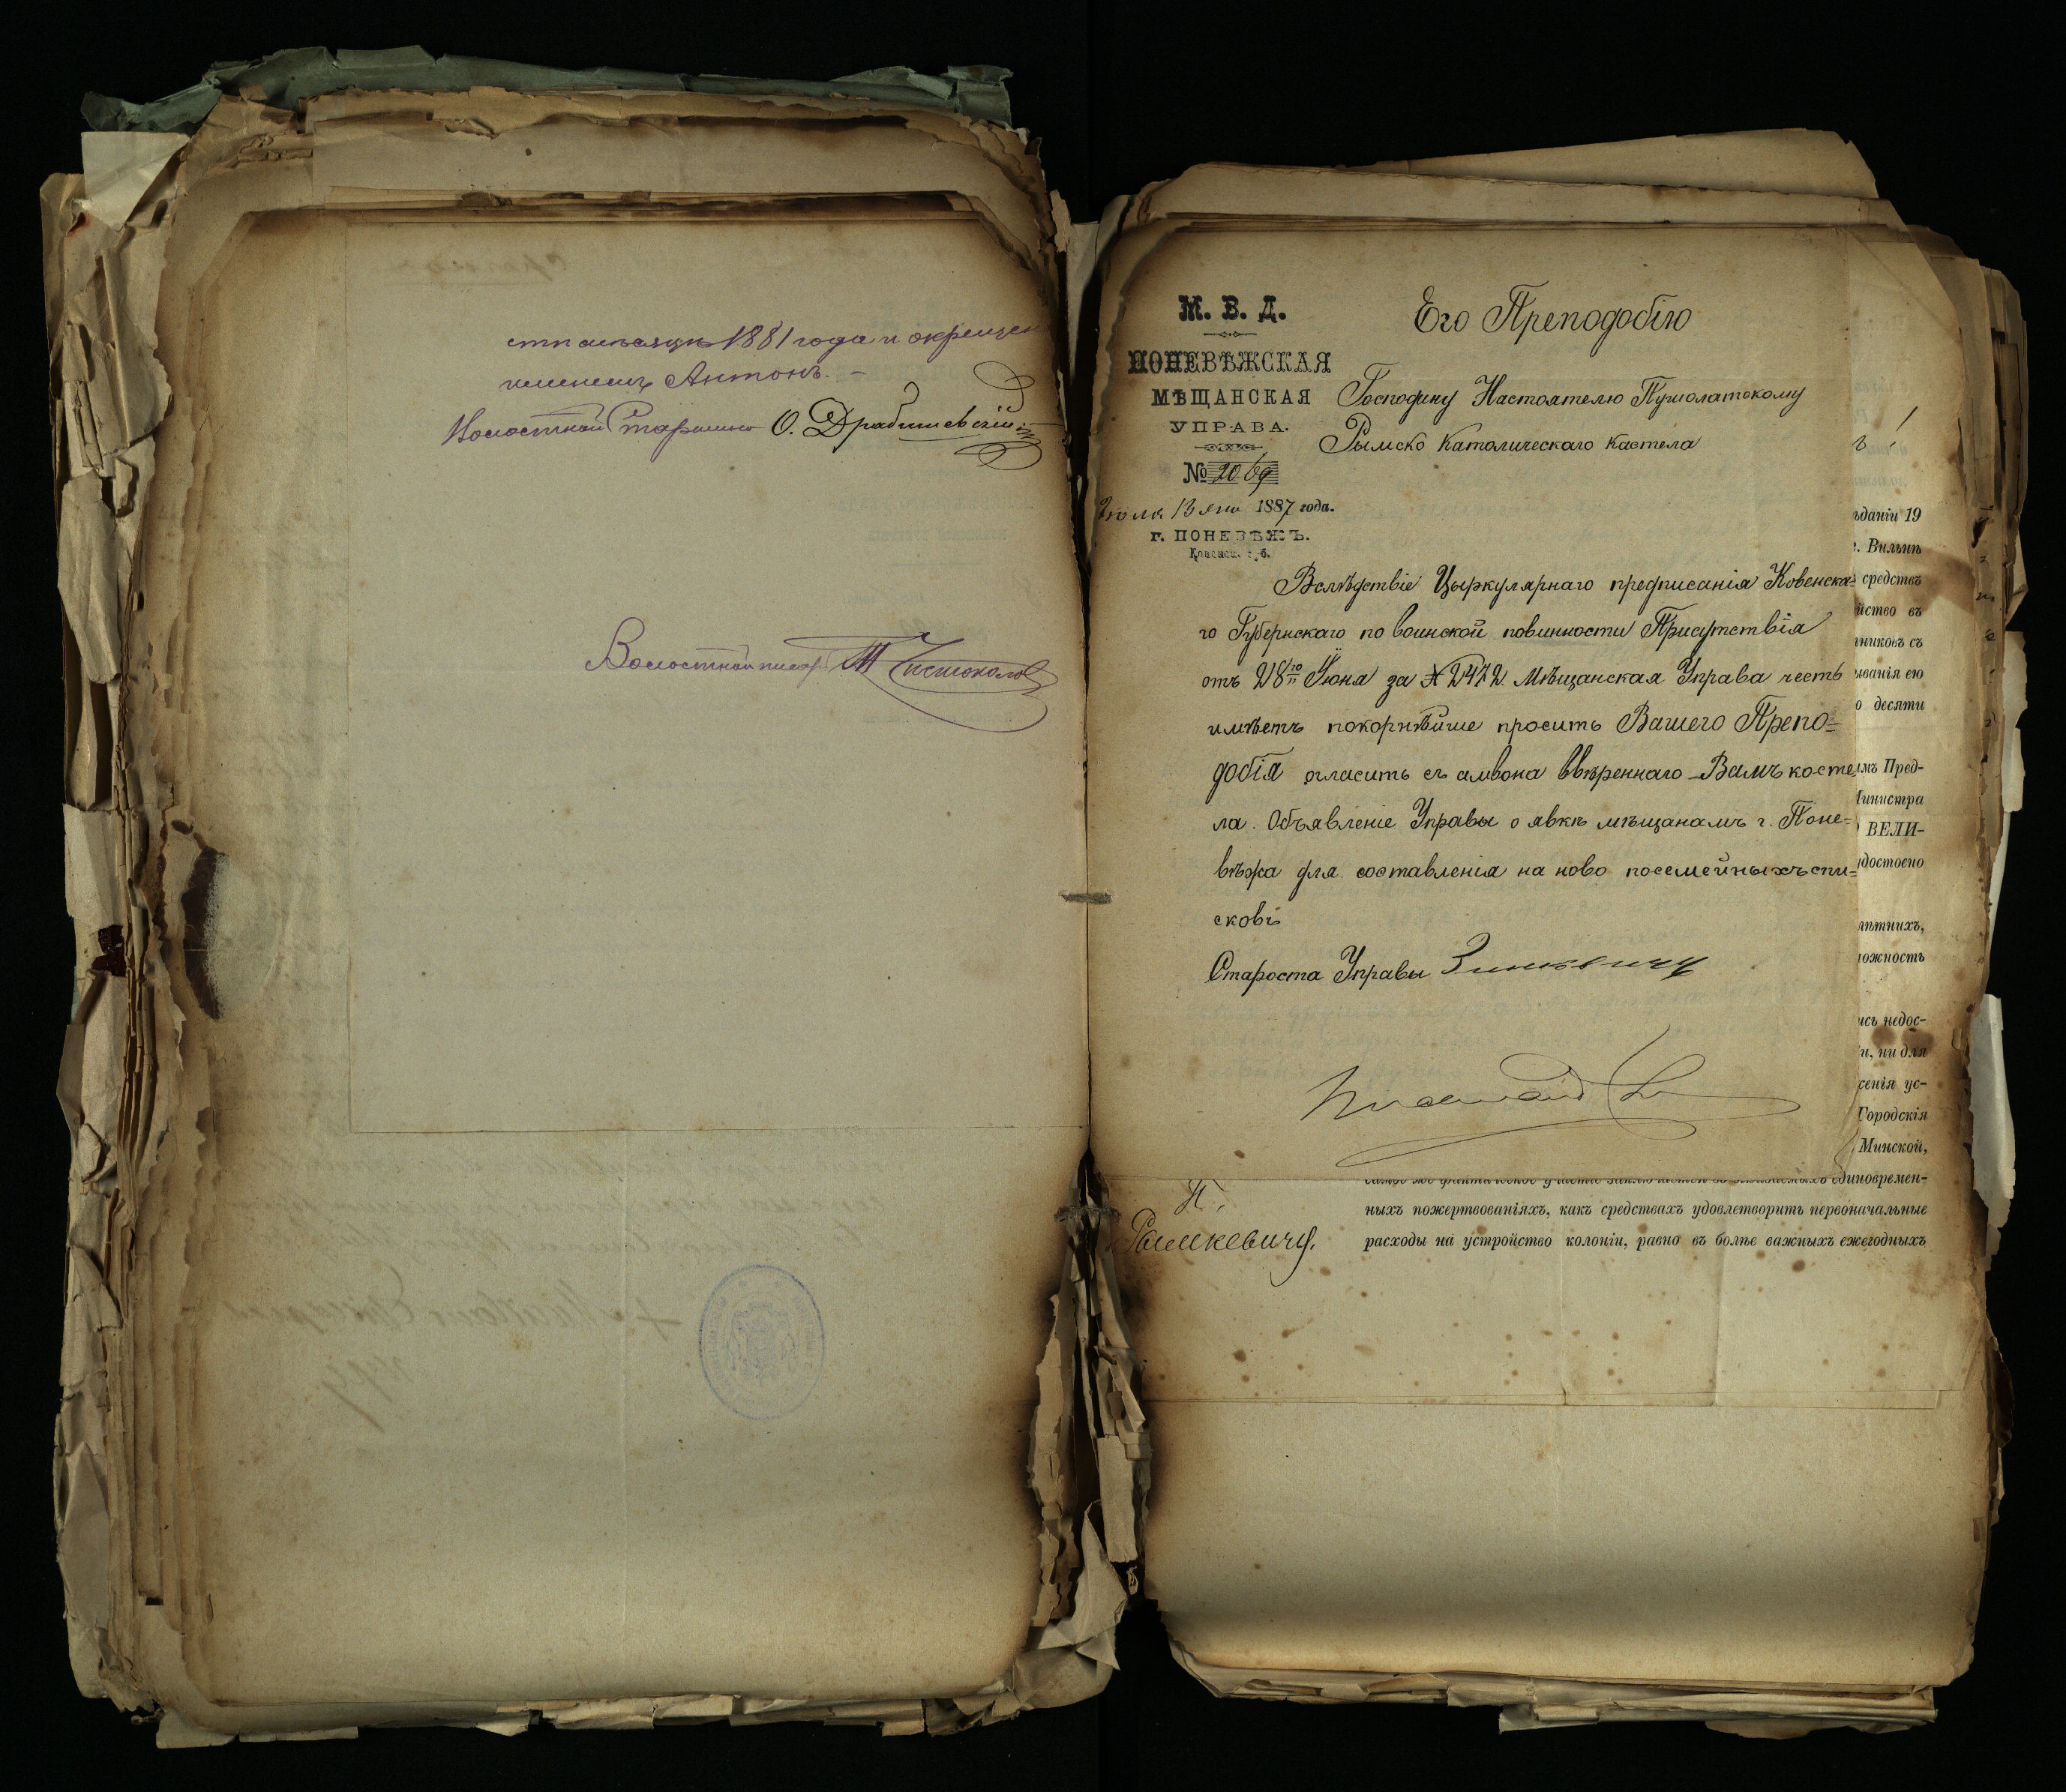 1881 года и окрещен
именемъ Антонъ. –
Волостной Старшина О. Драбишевскій
Волостной писарь
М. В. Д.
ПОНЕВѢЖСКАЯ
МѢЩАНСКАЯ
УПРАВА.
№ 2069
Іюля 13 дня 1887 года.
г. ПОНЕВѢЖЪ.
Ковенск. губ.
Его Преподобію
Господину Настоятелю Пушолатскому
Рымско Католическаго костела
Вслѣдствіе Цыркулярнаго предписанія Ковенска=
го Губернскаго по воинской повинности Присутствія
отъ 28го Июня за № 2472 Мѣщанская Управа честь
имѣетъ покорнѣйше просить Вашего Препо=
добія огласить съ амвона ввѣреннаго Вамъ косте
ла. Объявленіе Управы о явкѣ мѣщанамъ г. Поне=
вѣжа для составленія на ново посемейныхъ спи=
сковъ
Староста Управы Зинкевичъ
ъ!
ѣданіи 19
г. Вильнѣ
средствъ
йство въ
никовъ съ
ыванія ею
о десяти
ымъ Пред-
Министра
ВЕЛИ-
удостоено
лѣтнихъ,
ложность
ись недос-
и, ни для
сенія ус-
Городскія
Минской,
единовремен-
ныхъ пожертвованіяхъ, какъ средствахъ удовлетворить первоначальные
расходы на устройство колоніи, равно въ болѣе важныхъ ежегодныхъ
Рымкевичу.